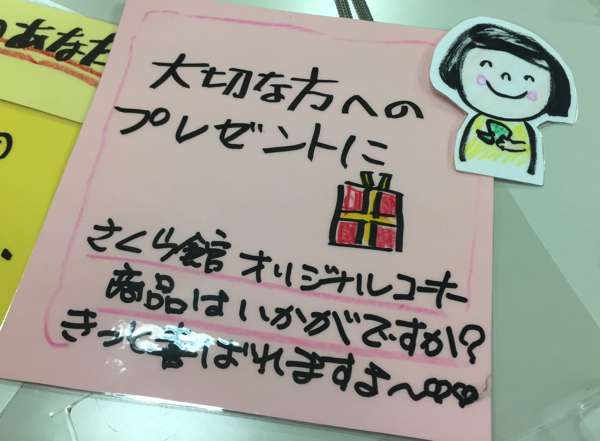 のあなた
の
大切な方への
プレゼントに
さくら館 オリジナルコーナー
商品はいかがですか?
きっと喜ばれますよ〜♡♡